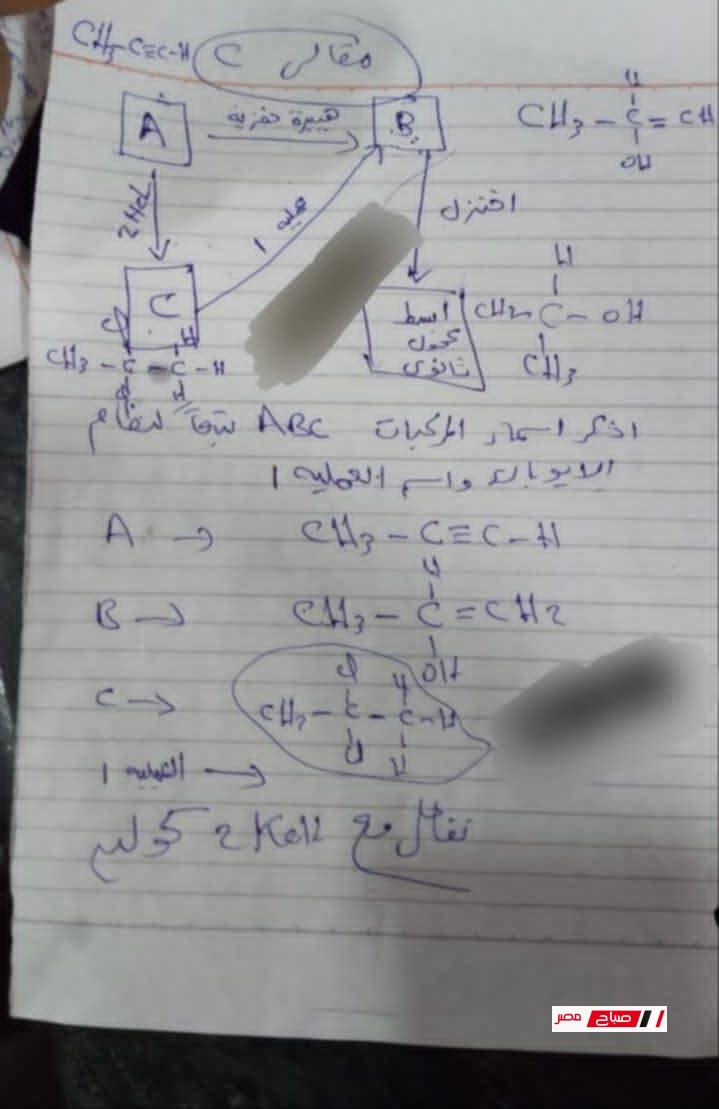 CH3-C≡C-H
مقالى C
A هيدرة حفزية B
CH3 - C = CH
H
OH
2HCl
عملية 1
اختزل
C
ابسط
كحول
ثانوى
H
CH3 - C - OH
CH3
Cl H
CH3 - C - C - H
Cl H
اذكر اسماء المركبات ABC تبعاً لنظام
الايوباك واسم العملية 1
A → CH3 - C ≡ C - H
H
B → CH3 - C = CH2
OH
Cl H
C → CH3 - C - C - H
Cl H
العملية 1 →
تفاعل مع 2 KOH كحولية
صباح مصر